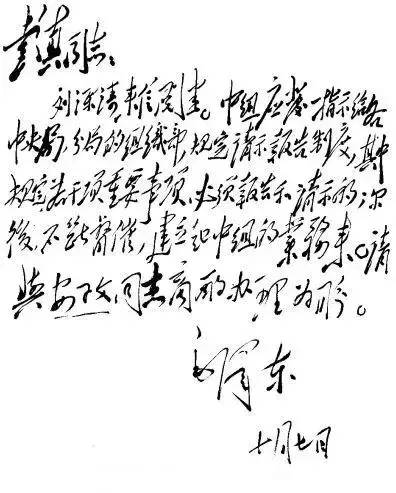 彭真同志：
刘深涛来信阅悉。中组应发一指示给各
中央局、分局的组织部，规定请示报告制度，其中
规定若干项重要事项，必须报告和请示的，然
後，不断督催，建立起中组的业务来。请
与安子文同志商酌办理为盼。
毛泽东
七月七日